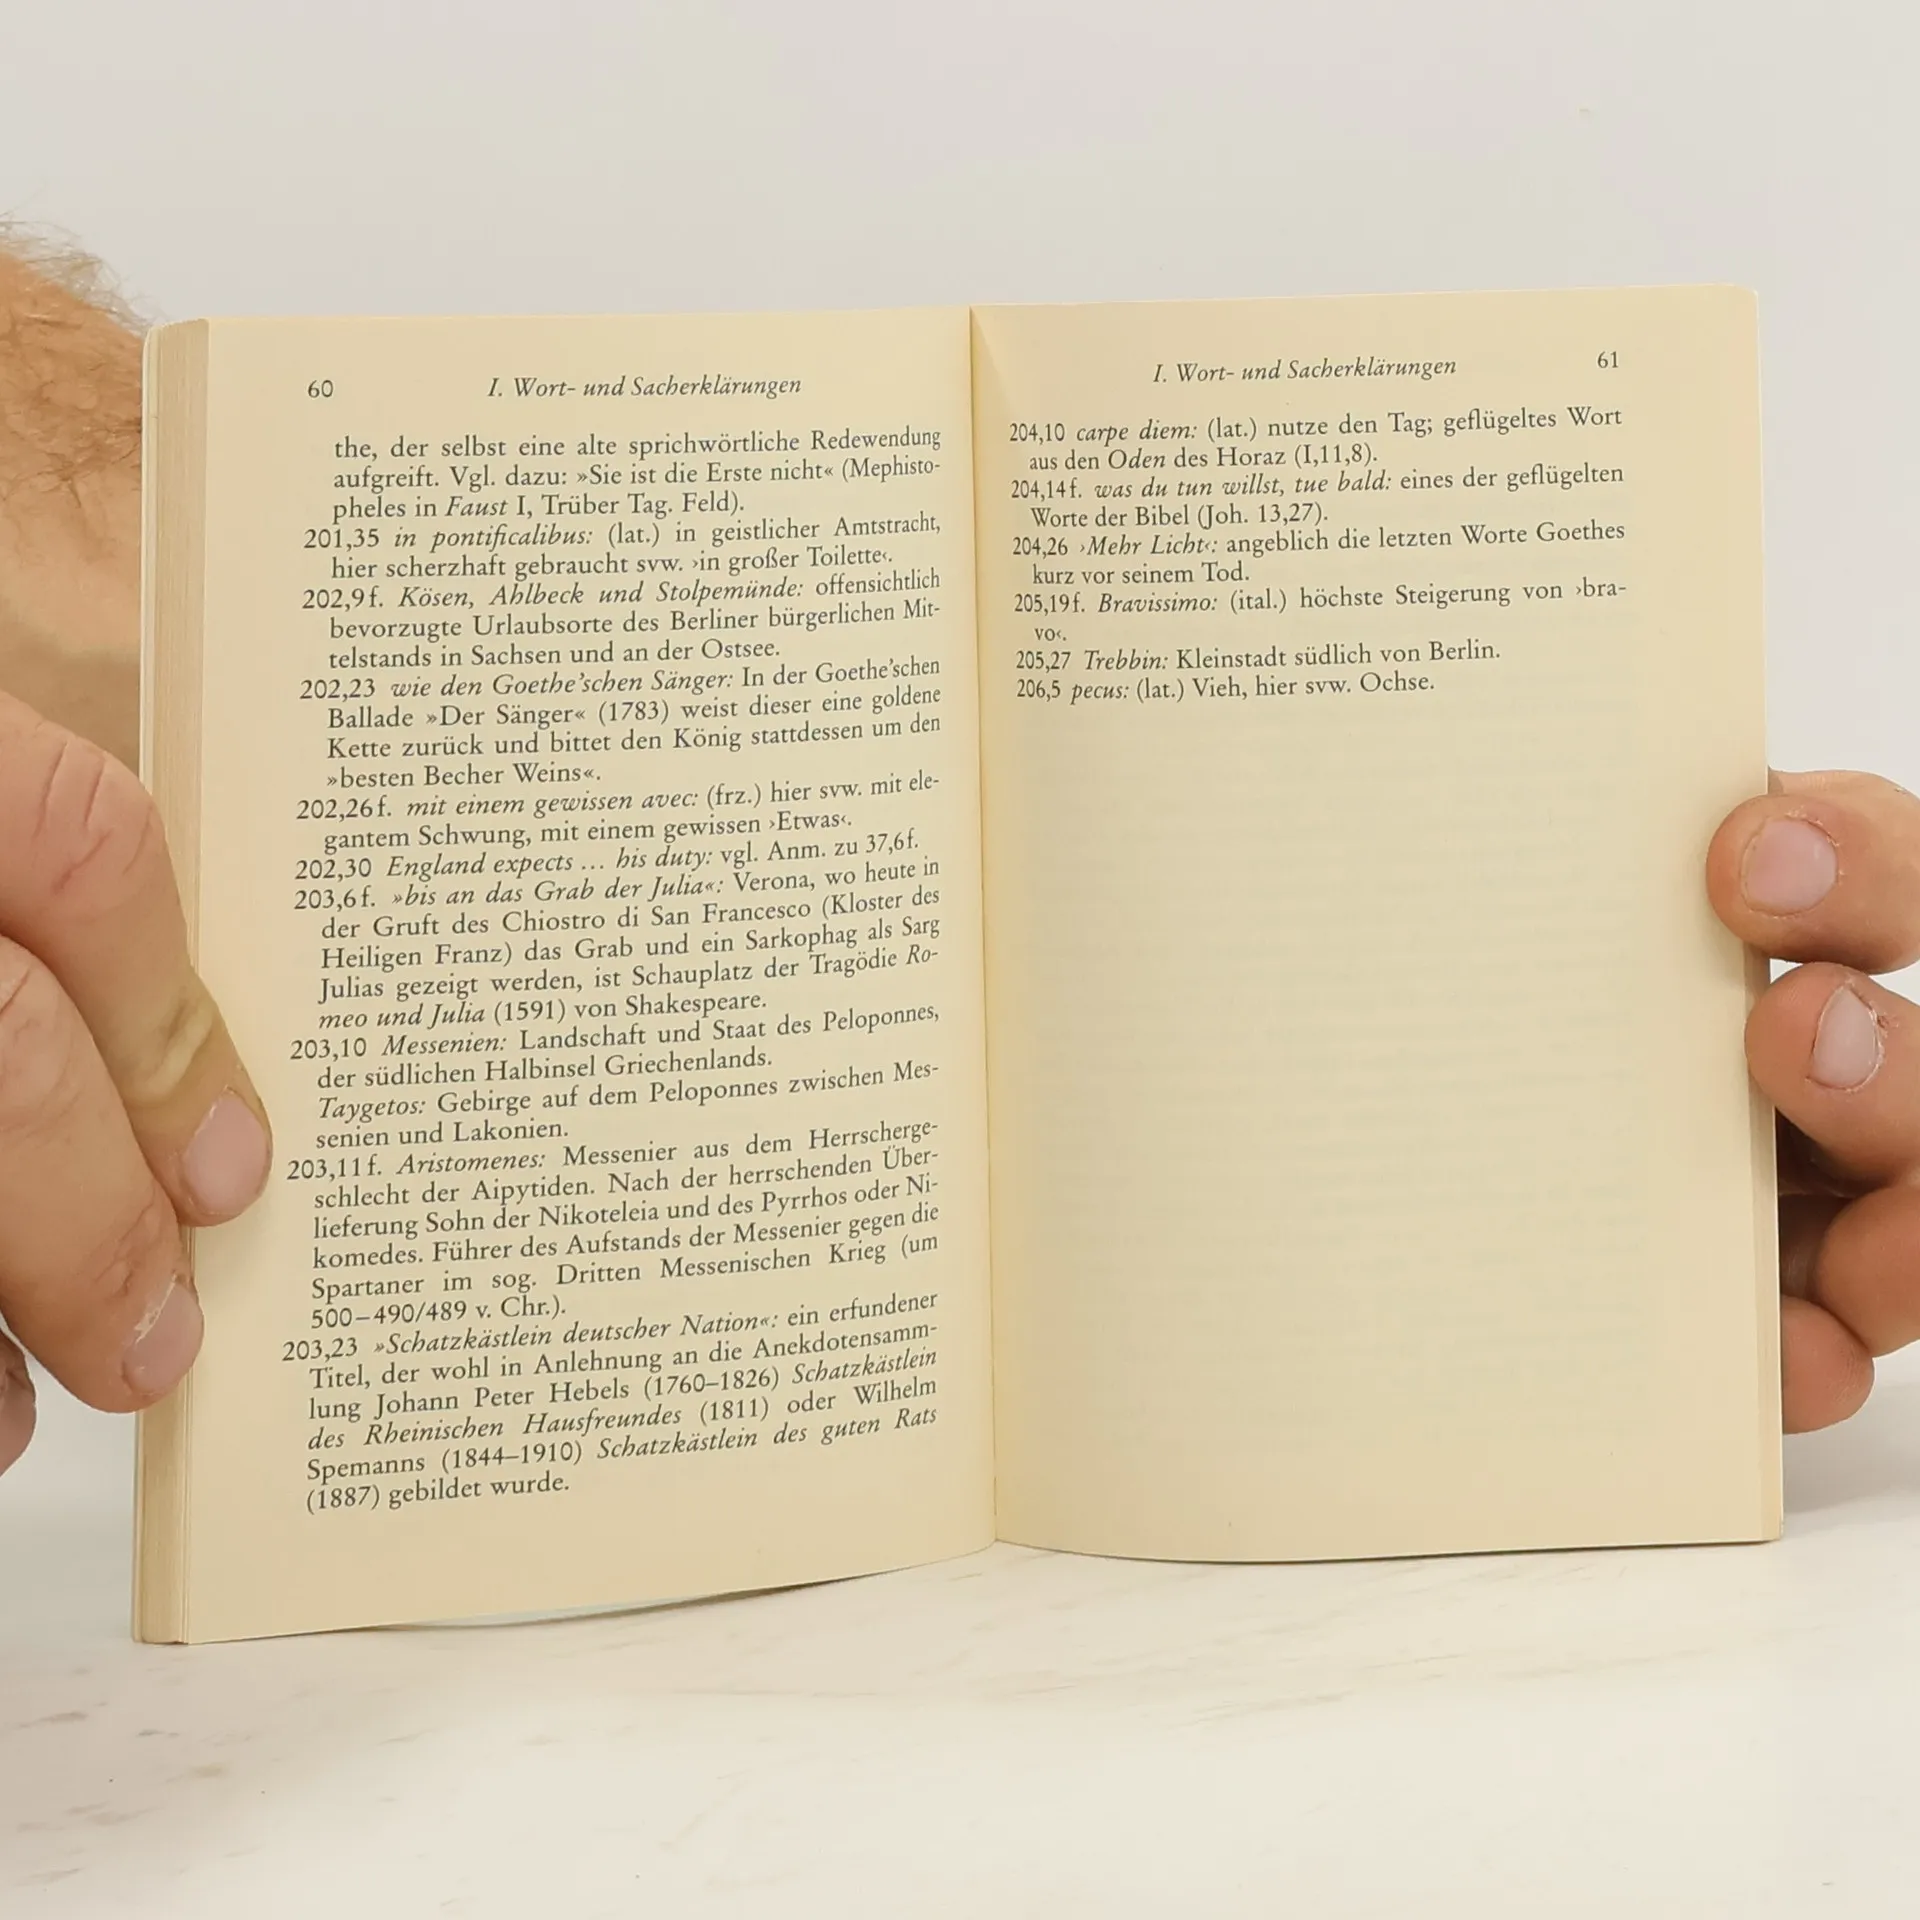 60
I. Wort- und Sacherklärungen
the, der selbst eine alte sprichwörtliche Redewendung
aufgreift. Vgl. dazu: »Sie ist die Erste nicht« (Mephisto-
pheles in Faust I, Trüber Tag. Feld).
201,35 in pontificalibus: (lat.) in geistlicher Amtstracht,
hier scherzhaft gebraucht svw. ›in großer Toilette‹.
202,9 f. Kösen, Ahlbeck und Stolpemünde: offensichtlich
bevorzugte Urlaubsorte des Berliner bürgerlichen Mit-
telstands in Sachsen und an der Ostsee.
202,23 wie den Goethe’schen Sänger: In der Goethe’schen
Ballade »Der Sänger« (1783) weist dieser eine goldene
Kette zurück und bittet den König stattdessen um den
»besten Becher Weins«.
202,26 f. mit einem gewissen avec: (frz.) hier svw. mit ele-
gantem Schwung, mit einem gewissen ›Etwas‹.
202,30 England expects ... his duty: vgl. Anm. zu 37,6 f.
203,6 f. »bis an das Grab der Julia«: Verona, wo heute in
der Gruft des Chiostro di San Francesco (Kloster des
Heiligen Franz) das Grab und ein Sarkophag als Sarg
Julias gezeigt werden, ist Schauplatz der Tragödie Ro-
meo und Julia (1591) von Shakespeare.
203,10 Messenien: Landschaft und Staat des Peloponnes,
der südlichen Halbinsel Griechenlands.
Taygetos: Gebirge auf dem Peloponnes zwischen Mes-
senien und Lakonien.
203,11 f. Aristomenes: Messenier aus dem Herrscherge-
schlecht der Aipytiden. Nach der herrschenden Über-
lieferung Sohn der Nikoteleia und des Pyrrhos oder Ni-
komedes. Führer des Aufstands der Messenier gegen die
Spartaner im sog. Dritten Messenischen Krieg (um
500–490/489 v. Chr.).
203,23 »Schatzkästlein deutscher Nation«: ein erfundener
Titel, der wohl in Anlehnung an die Anekdotensamm-
lung Johann Peter Hebels (1760–1826) Schatzkästlein
des Rheinischen Hausfreundes (1811) oder Wilhelm
Spemanns (1844–1910) Schatzkästlein des guten Rats
(1887) gebildet wurde.
I. Wort- und Sacherklärungen
61
204,10 carpe diem: (lat.) nutze den Tag; geflügeltes Wort
aus den Oden des Horaz (I,11,8).
204,14 f. was du tun willst, tue bald: eines der geflügelten
Worte der Bibel (Joh. 13,27).
204,26 ›Mehr Licht‹: angeblich die letzten Worte Goethes
kurz vor seinem Tod.
205,19 f. Bravissimo: (ital.) höchste Steigerung von ›bra-
vo‹.
205,27 Trebbin: Kleinstadt südlich von Berlin.
206,5 pecus: (lat.) Vieh, hier svw. Ochse.